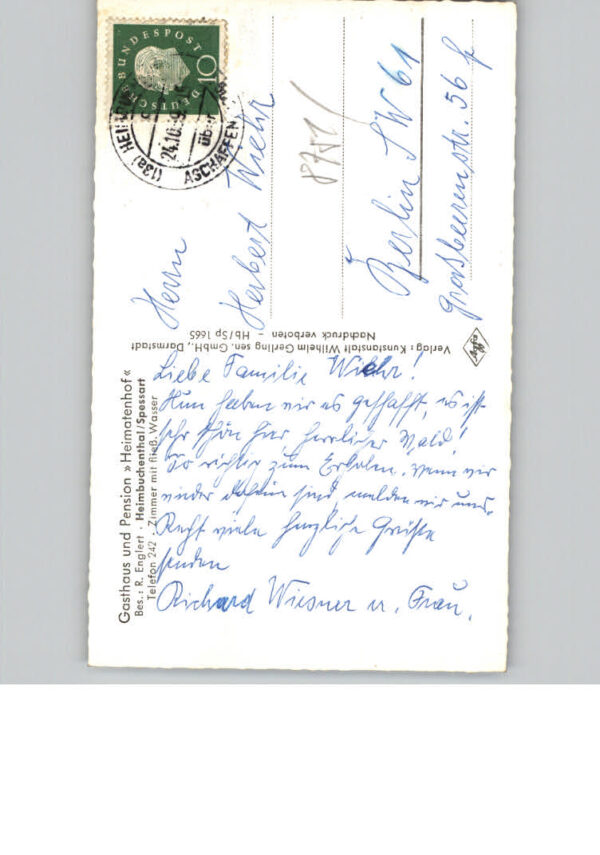 DEUTSCHE BUNDESPOST
10
(13a)
24.10.
über
ASCHAFFEN
8751
Herrn
Herbert Wiehr
Berlin SW 61
Großbeerenstr. 56 f
Verlag: Kunstanstalt Wilhelm Gerling sen. GmbH., Darmstadt
Nachdruck verboten - Hb/Sp 1665
Gasthaus und Pension »Heimatenhof«
Bes.: R. Englert · Heimbuchenthal/Spessart
Telefon 242 Zimmer mit fließ. Wasser
Liebe Familie Wiehr!
Nun haben wir es geschafft, es ist
sehr schön hier, herrlicher Wald!
So richtig zum Erholen. Wenn wir
wieder daheim sind, melden wir uns.
Recht viele herzliche Grüße
senden
Richard Wiesner u. Frau.